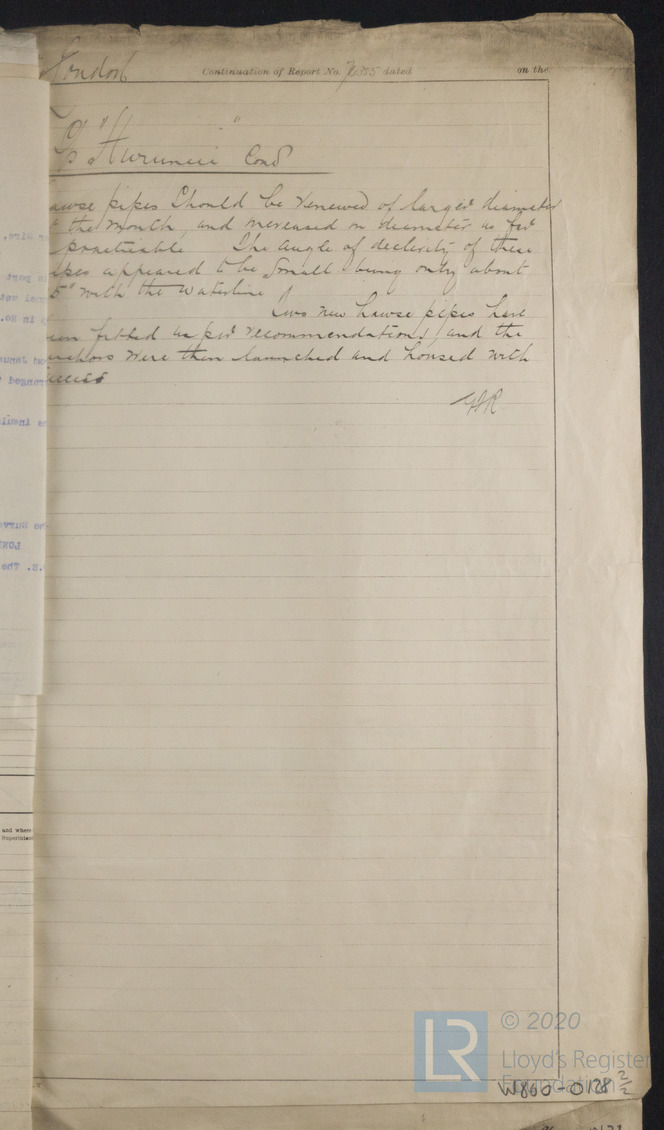 London
Continuation of Report No. 7655 dated on the
"Hurunui" Cond
hawse pipes Should be renewed of larger diameter
the mouth, and increased in diameter as far
practicable The angle of declivity of these
pipes appeared to be small being only about
5° with the waterline
Two new hawse pipes have
been fitted as per recommendations, and the
anchors were then launched and housed with
success
and where
Superintend
LR
© 2020
Lloyd's Register
Foundation
W860-0128 2/2